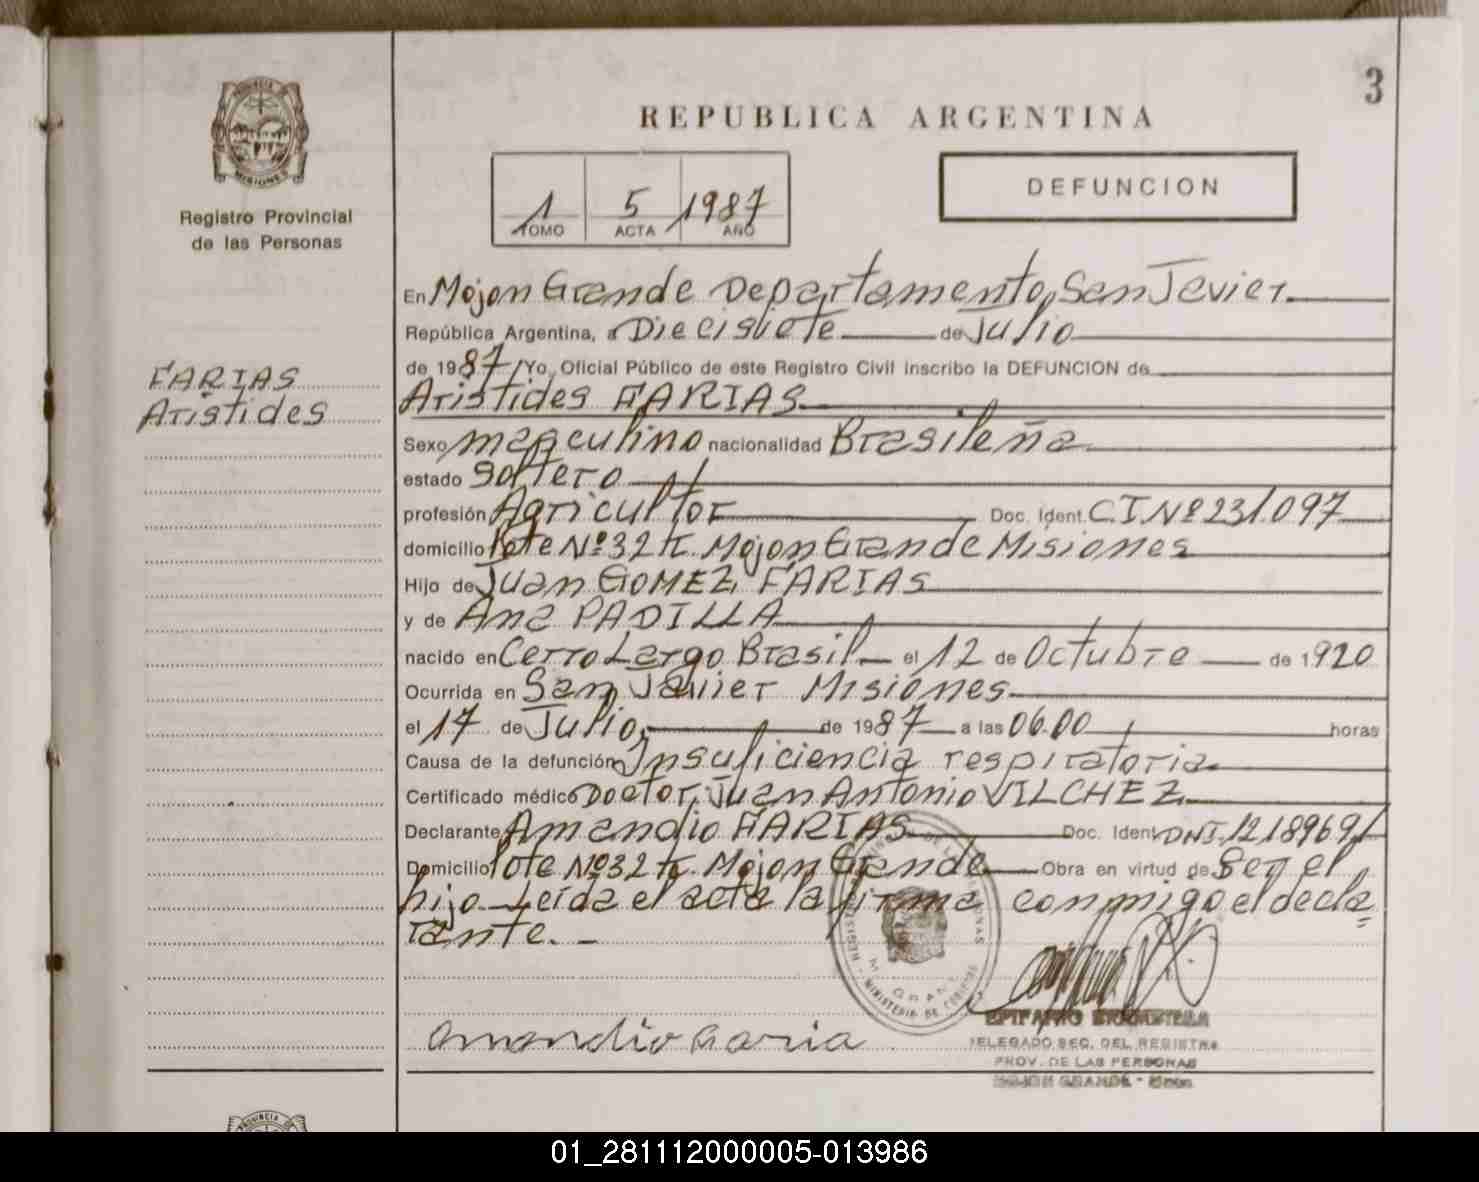 3
PROVINCIA DE
MISIONES
Registro Provincial
de las Personas
REPUBLICA ARGENTINA
1 5 1987
TOMO ACTA AÑO
DEFUNCION
En Mojon Grande Departamento, San Javier
República Argentina, a Diecisiete de Julio
de 1987 Yo, Oficial Público de este Registro Civil inscribo la DEFUNCION de
FARIAS
Aristides
Aristides FARIAS
Sexo masculino nacionalidad Brasileña
estado Soltero
profesión Agricultor Doc. Ident. C.I Nº 231.097
domicilio lote Nº 32 Mojon Grande Misiones
Hijo de Juan GOMEZ FARIAS
y de Ana PADILLA
nacido en Cerro Largo Brasil el 12 de Octubre de 1920
Ocurrida en San Javier Misiones
el 17 de Julio, de 1987 a las 06.00 horas
Causa de la defunción Insuficiencia respiratoria
Certificado médico Doctor, Juan Antonio VILCHEZ
Declarante Amandio FARIAS Doc. Ident. DNI. 12.189.691
Domicilio lote Nº 32 Mojon Grande Obra en virtud de Ser el
hijo Leída el acta la firma conmigo el decla
rante.-
MINISTERIO DE GOBIERNO
Amandio Faria
DELEGADO SEC. DEL REGISTRO
PROV. DE LAS PERSONAS
MOJON GRANDE - Mnes
PROVINCIA DE
01_281112000005-013986